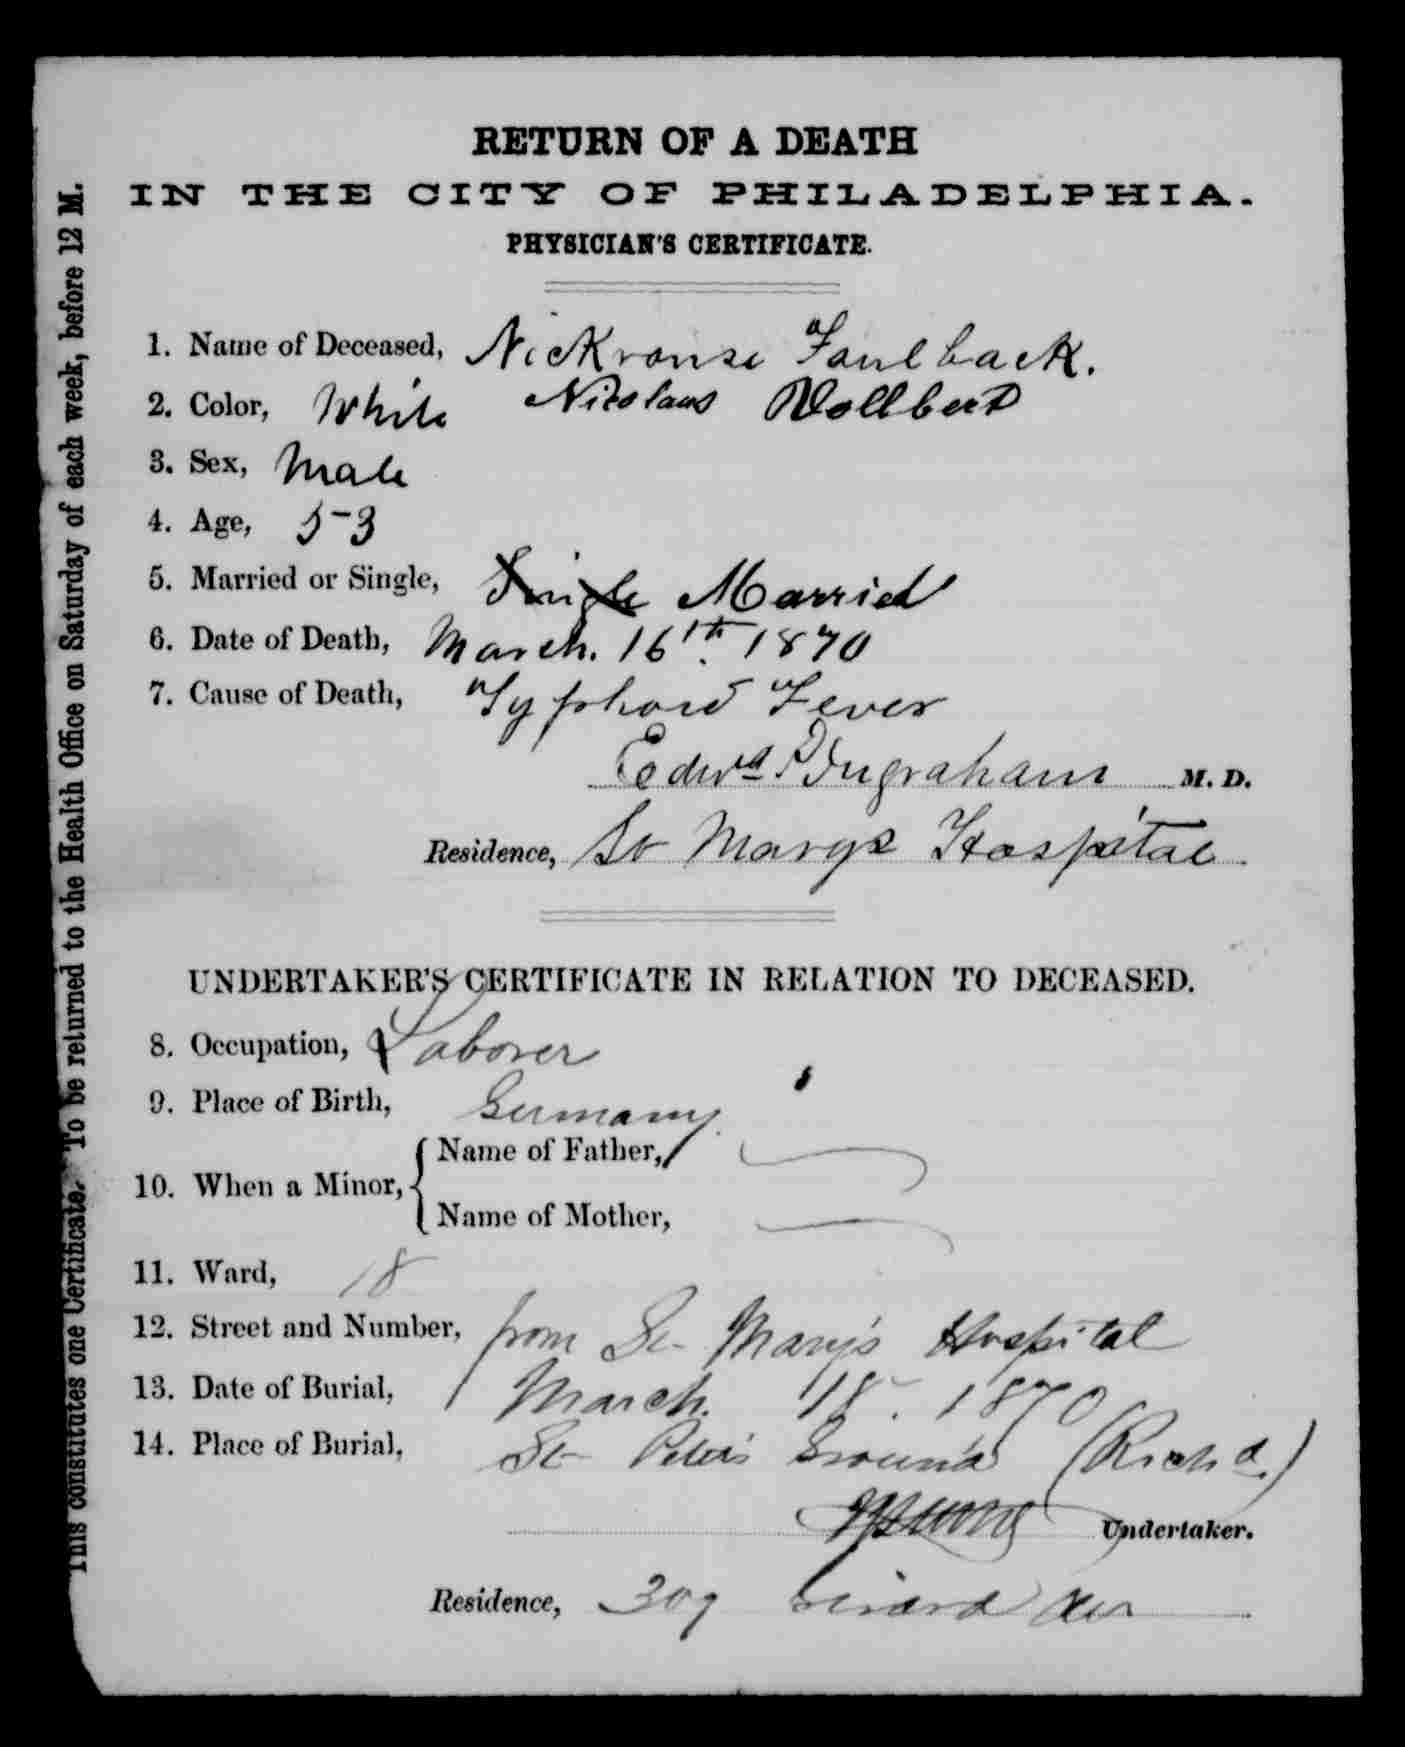 RETURN OF A DEATH
IN THE CITY OF PHILADELPHIA.
PHYSICIAN'S CERTIFICATE.
1. Name of Deceased, Nickrouse Faulback.
Nicolaus Vollbert
2. Color, White
3. Sex, Male
4. Age, 53
5. Married or Single, Single Married
6. Date of Death, March. 16th. 1870
7. Cause of Death, Typhoid Fever
Edwd P Ingraham M. D.
Residence, St Marys Hospital
UNDERTAKER'S CERTIFICATE IN RELATION TO DECEASED.
8. Occupation, Laborer
9. Place of Birth, Germany.
10. When a Minor, { Name of Father,
Name of Mother,
11. Ward, 18
12. Street and Number, from St. Mary's Hospital
13. Date of Burial, March. 18. 1870
14. Place of Burial, St Peter's Ground (Richd.)
Undertaker.
Residence, 309 Girard Av
This constitutes one Certificate. To be returned to the Health Office on Saturday of each week, before 12 M.